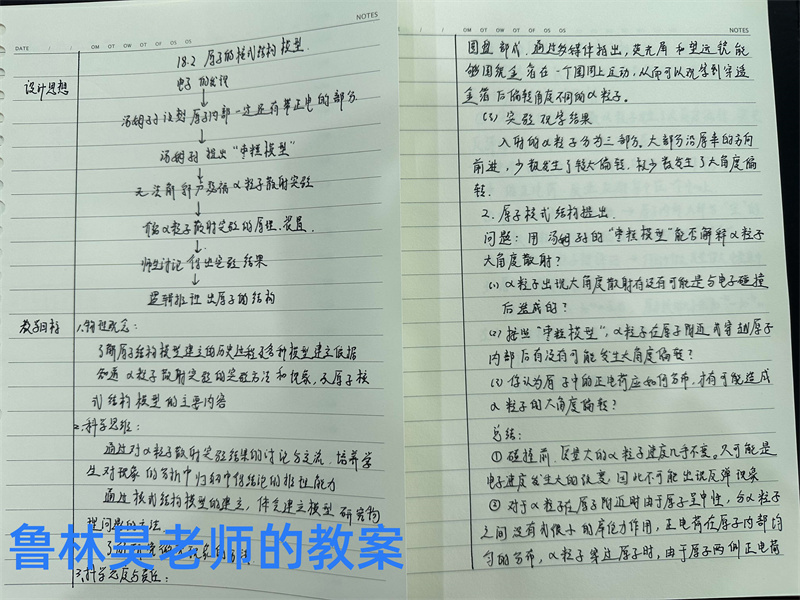 NOTES
DATE / / OM OT OW OT OF OS OS
18.2 原子的核式结构模型.
设计思想
电子的发现
汤姆孙认识到原子内部一定还有带正电的部分
汤姆孙提出“枣糕模型”
α粒子散射实验
介绍α粒子散射实验的原理、装置
师生讨论得出实验结果
逻辑推理出原子的结构
教学目标
1.物理观念:
了解原子结构模型建立的历史过程及各种模型建立依据
知道α粒子散射实验的实验方法和现象,及原子核
式结构模型的主要内容
2.科学思维:
通过对α粒子散射实验结果的讨论与交流,培养学
生对现象的分析中归纳中得结论的推理能力
通过核式结构模型的建立,体会建立模型研究物
理问题的方法
3.科学态度与责任:
鲁林昊老师的教案
/ / OM OT OW OT OF OS OS NOTES
圆盘部成.通过多媒体指出,荧光屏和望远镜能
够围绕金箔在一个圆周上运动,从而可以观察到穿透
金箔后偏转角度不同的α粒子。
(3)实验观察结果
入射的α粒子分为三部分。大部分沿原来的方向
前进,少数发生了较大偏转,极少数发生了大角度偏
转.
2.原子核式结构提出.
问题:用汤姆孙的“枣糕模型”能否解释α粒子
大角度散射?
(1)α粒子出现大角度散射有没有可能是与电子碰撞
后造成的?
(2)按照“枣糕模型”,α粒子在原子附近或穿越原子
内部后有没有可能发生大角度偏转?
(3)你认为原子中的正电荷应如何分布,才有可能造成
α粒子的大角度偏转?
总结:
①碰撞前,质量大的α粒子速度几乎不变。只可能是
电子速度发生大的改变,因此不可能出现反弹现象
②对于α粒子在原子附近时由于原子呈中性,与α粒子
之间没有或很小的库仑力作用,正电荷在原子内部均
匀的分布,α粒子穿过原子时,由于原子两侧正电荷